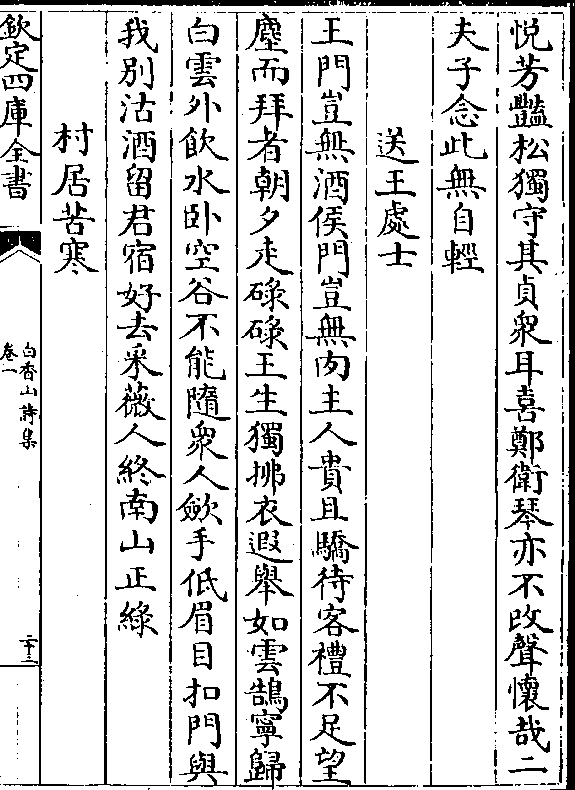 悦芳豔松獨守其貞衆耳喜鄭衛琴亦不改聲懷哉二
夫子念此無自輕
送王處士
王門豈無酒侯門豈無肉主人貴且驕待客禮不足望
塵而拜者朝夕走碌碌王生獨拂衣遐舉如雲鵠寧歸
白雲外飲水卧空谷不能隨衆人斂手低眉目扣門與
我别沽酒留君宿好去采薇人終南山正綠
村居苦寒
欽定四庫全書
白香山詩集
卷一
二十三